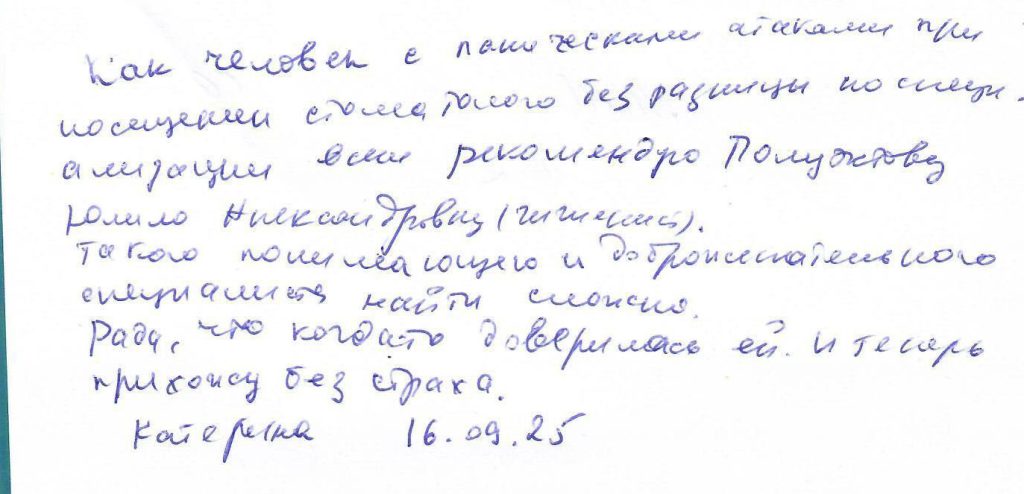 Как человек с паническами атаками при
посещении стоматолого без разницы по специ-
ализации всем рекомендую Полуэктову
Юлию Александровну (гигиенист).
Такого понимающего и доброжелательного
специалиста найти сложно.
Рада, что когдато доверилась ей. И теперь
прихожу без страха.
Катерина 16.09.25